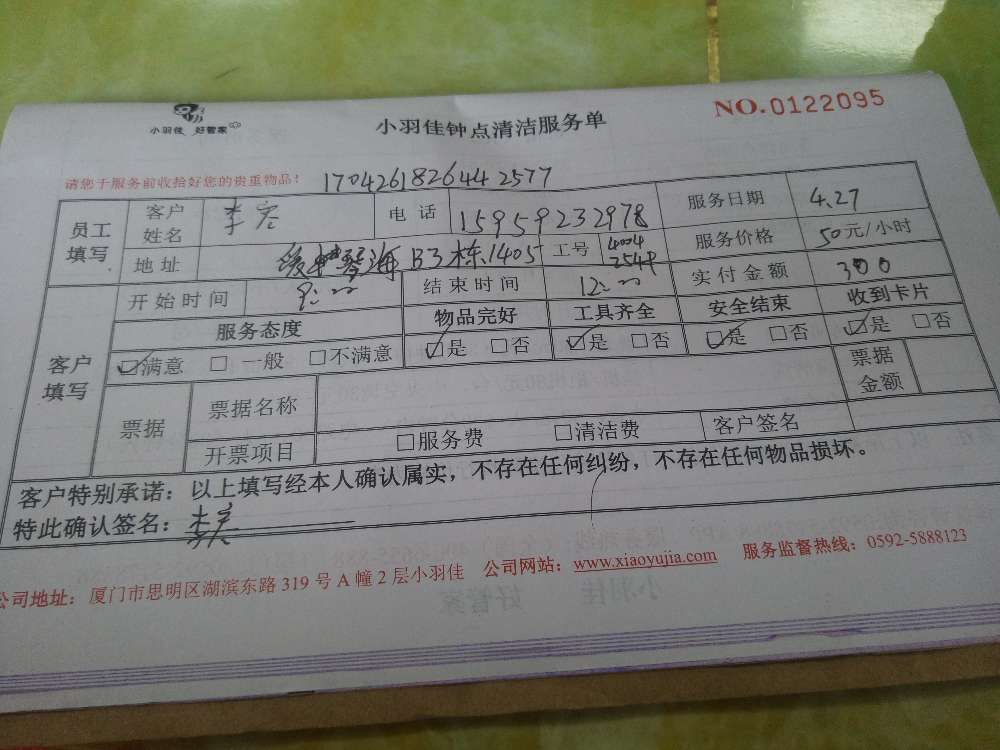 小羽佳 好管家
小羽佳钟点清洁服务单
NO.0122095
请您于服务前收拾好您的贵重物品! 170426182644 2577
员工填写 客户姓名 李宏 电话 15959232978 服务日期 4.27
地址 琴海 B3栋1405 工号 4004 2549 服务价格 50元/小时
开始时间 9:00 结束时间 12:00 实付金额 300
客户填写 服务态度 物品完好 工具齐全 安全结束 收到卡片
☑满意 □一般 □不满意 ☑是 □否 ☑是 □否 ☑是 □否 ☑是 □否
票据 票据名称 票据金额
开票项目 □服务费 □清洁费 客户签名
客户特别承诺:以上填写经本人确认属实,不存在任何纠纷,不存在任何物品损坏。
特此确认签名:李宏
公司地址:厦门市思明区湖滨东路 319 号 A 幢 2 层小羽佳 公司网站:www.xiaoyujia.com 服务监督热线:0592-5888123